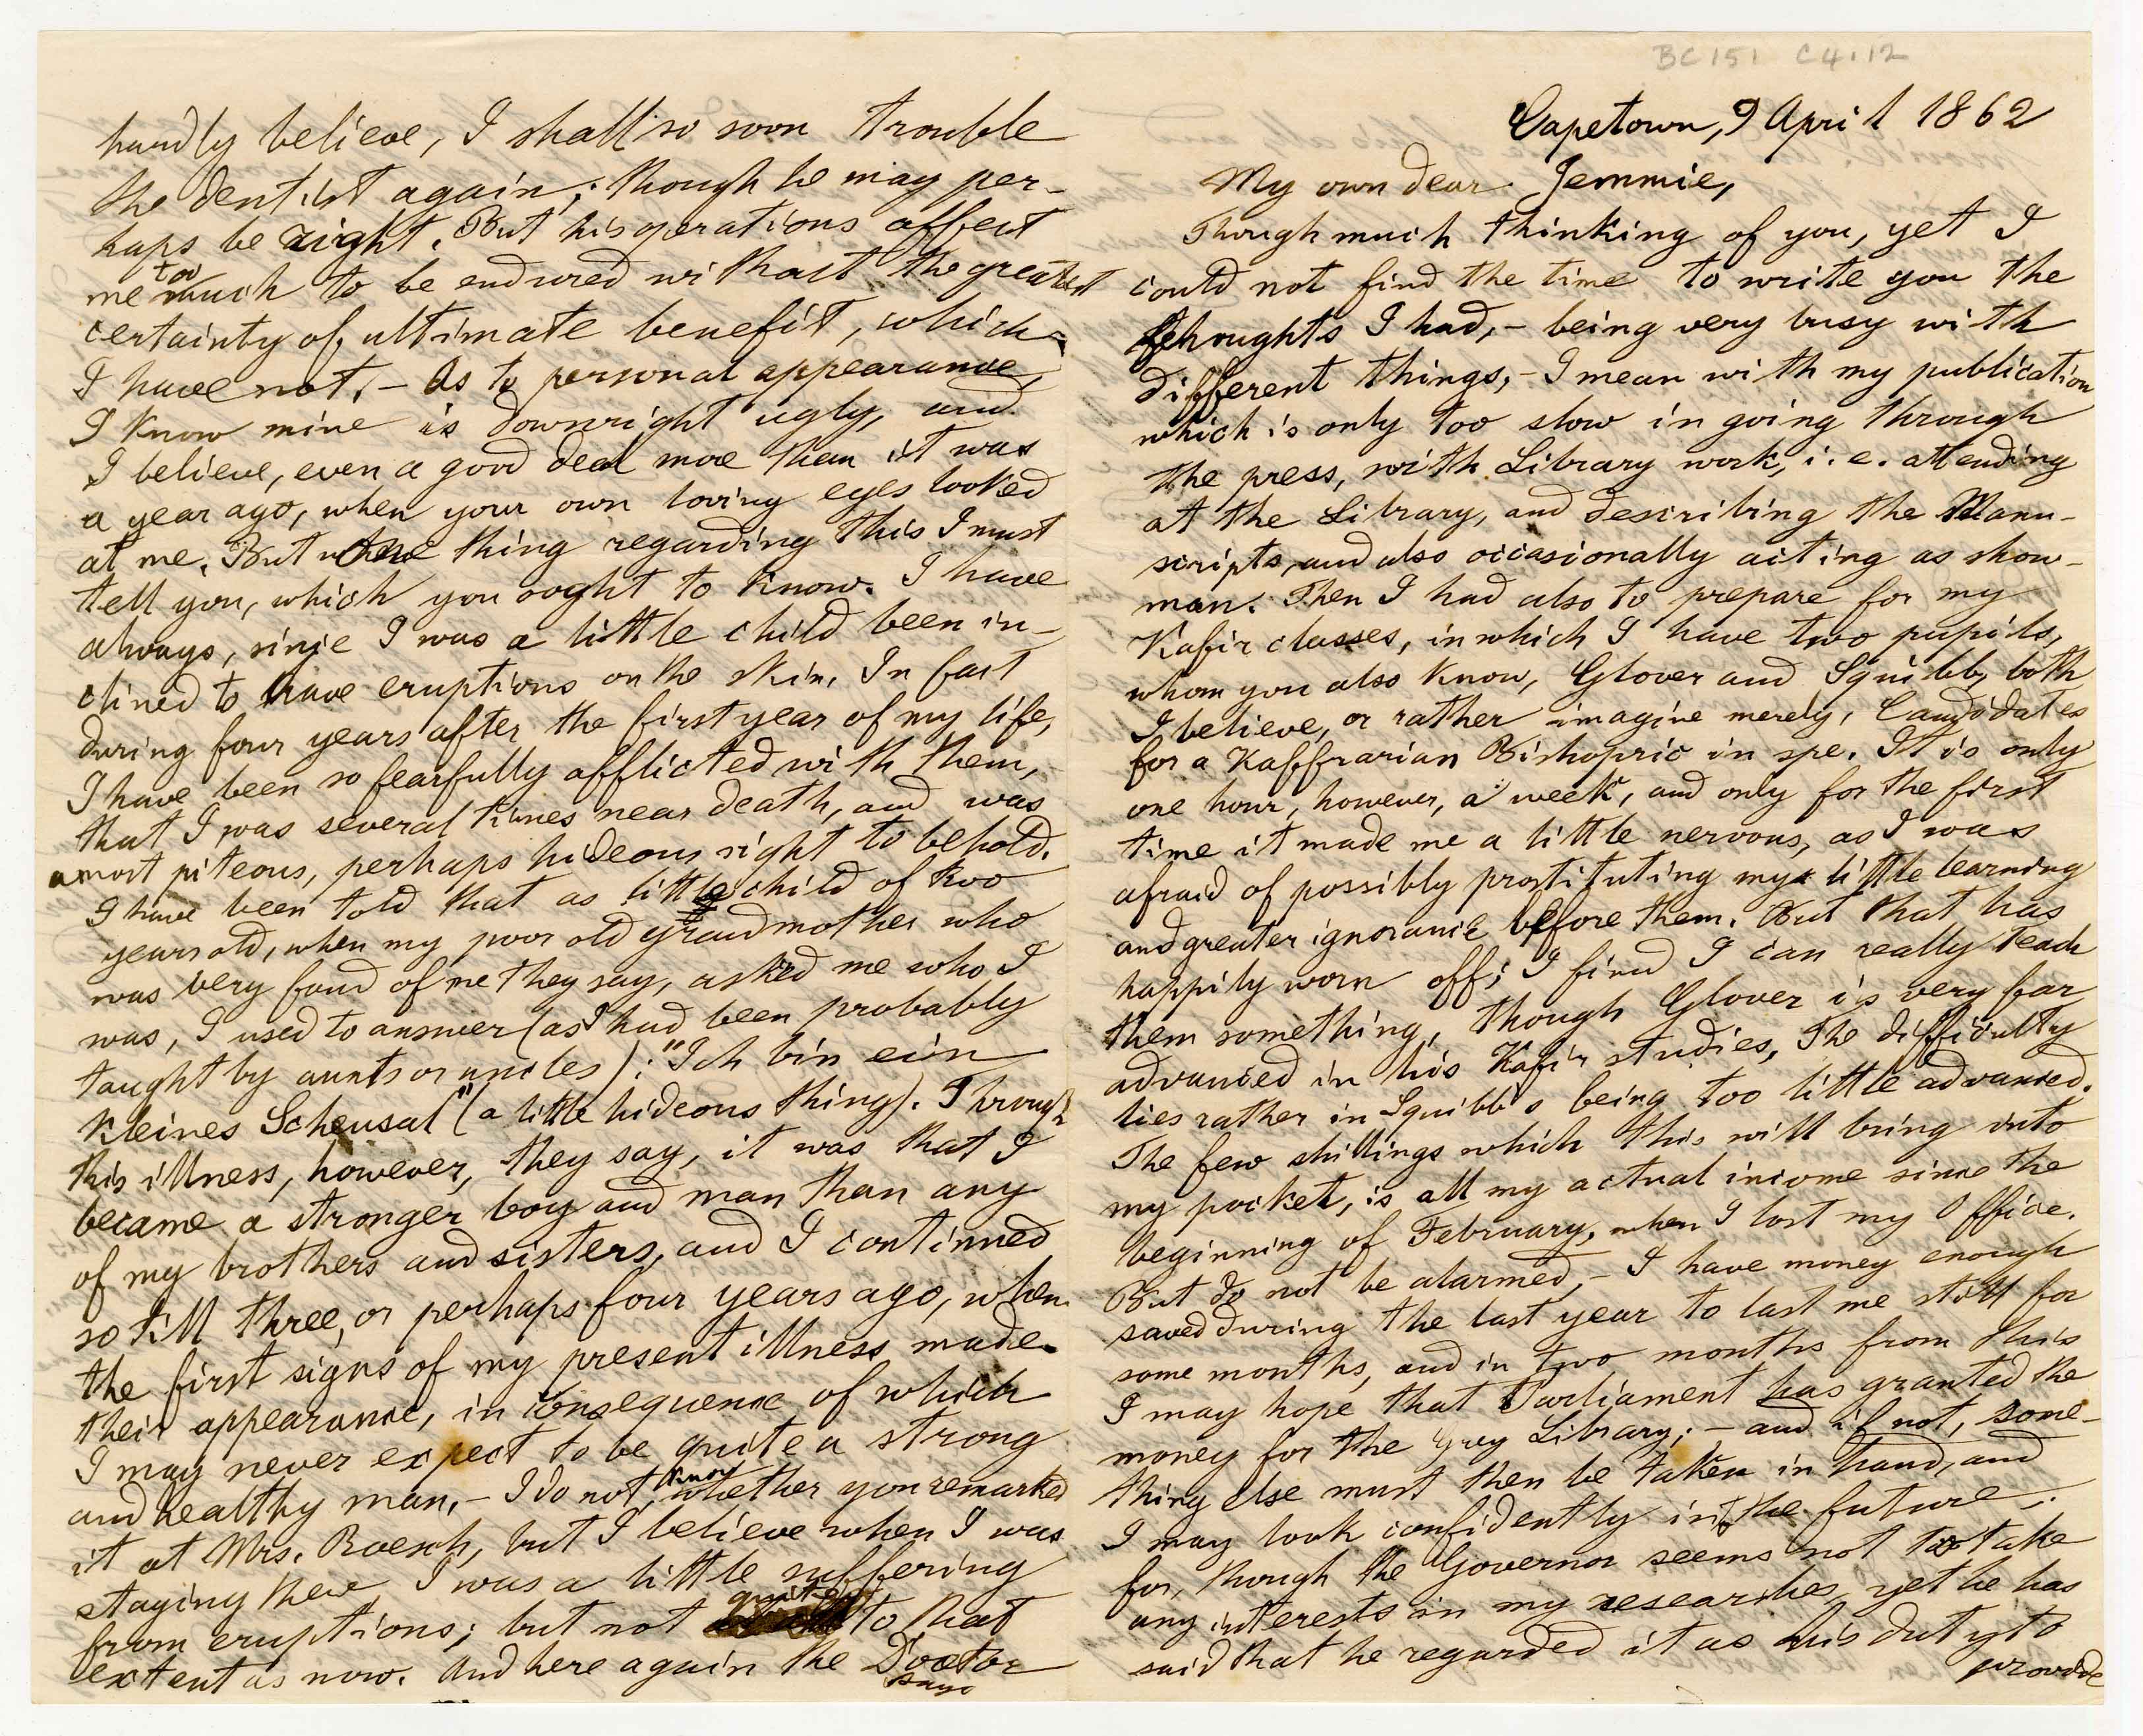 BC 151 C4.12
Capetown, 9 April 1862
My own dear Jemmie,
Though much thinking of you, yet I
could not find the time to write you the
thoughts I had, – being very busy with
different things, – I mean with my publication
which is only too slow in going through
the press, with Library work, i.e. attending
at the Library, and describing the Manu-
scripts, and also occasionally acting as show-
man. Then I had also to prepare for my
Kafir classes, in which I have two pupils,
whom you also know, Glover and Squibb, both
I believe, or rather imagine merely, Candidates
for a Kaffrarian Bishopric in spe. It is only
one hour, however, a week, and only for the first
time it made me a little nervous, as I was
afraid of possibly prostituting my little learning
and greater ignorance before them. But that has
happily worn off; I find I can really teach
them something, though Glover is very far
advanced in his Kafir studies. The difficulty
lies rather in Squibb's being too little advanced.
The few shillings which this will bring into
my pocket, is all my actual income since the
beginning of February, when I lost my Office.
But do not be alarmed, – I have money enough
saved during the last year to last me still for
some months, and in two months from this
I may hope that Parliament has granted the
money for the Grey Library; – and if not, some-
thing else must then be taken in hand, and
I may look confidently in the future;
for, though the Governor seems not to take
any interests in my researches, yet he has
said that he regarded it as his duty to
provide
hardly believe, I shall so soon trouble
the dentist again; though he may per-
haps be right. But his operations affect
me too much to be endured without the greatest
certainty of ultimate benefit, which
I have not. – As to personal appearance,
I know mine is downright ugly, and
I believe, even a good deal more than it was
a year ago, when your own loving eyes looked
at me. But one thing regarding this I must
tell you, which you ought to know. I have
always, since I was a little child been in-
clined to have eruptions on the skin. In fact
during four years after the first year of my life,
I have been so fearfully afflicted with them,
that I was several times near death, and was
a most piteous, perhaps hideous sight to behold.
I have been told that as little child of two
years old, when my poor old grandmother who
was very fond of me they say, asked me who I
was, I used to answer (as I had been probably
taught by aunts or uncles): "Ich bin ein
kleines Scheusal" (a little hideous thing). Through
this illness, however, they say, it was that I
became a stronger boy and man than any
of my brothers and sisters, and I continued
so till three, or perhaps four years ago, when
the first signs of my present illness made
their appearance, in consequence of which
I may never expect to be quite a strong
and healthy man. – I do not know whether you remarked
it at Mrs. Roesch, but I believe when I was
staying there, I was a little suffering
from eruptions; but not quite to that
extent as now. And here again the Doctor
says